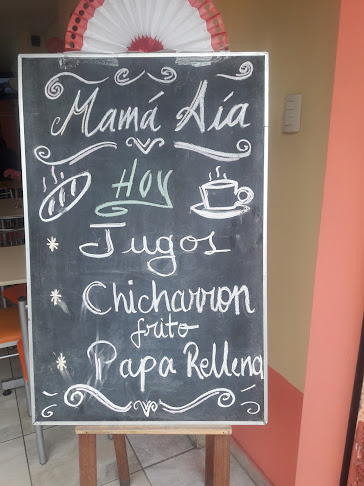 Mamá Aía
Hoy
* Jugos
* Chicharron
frito
* Papa Rellena